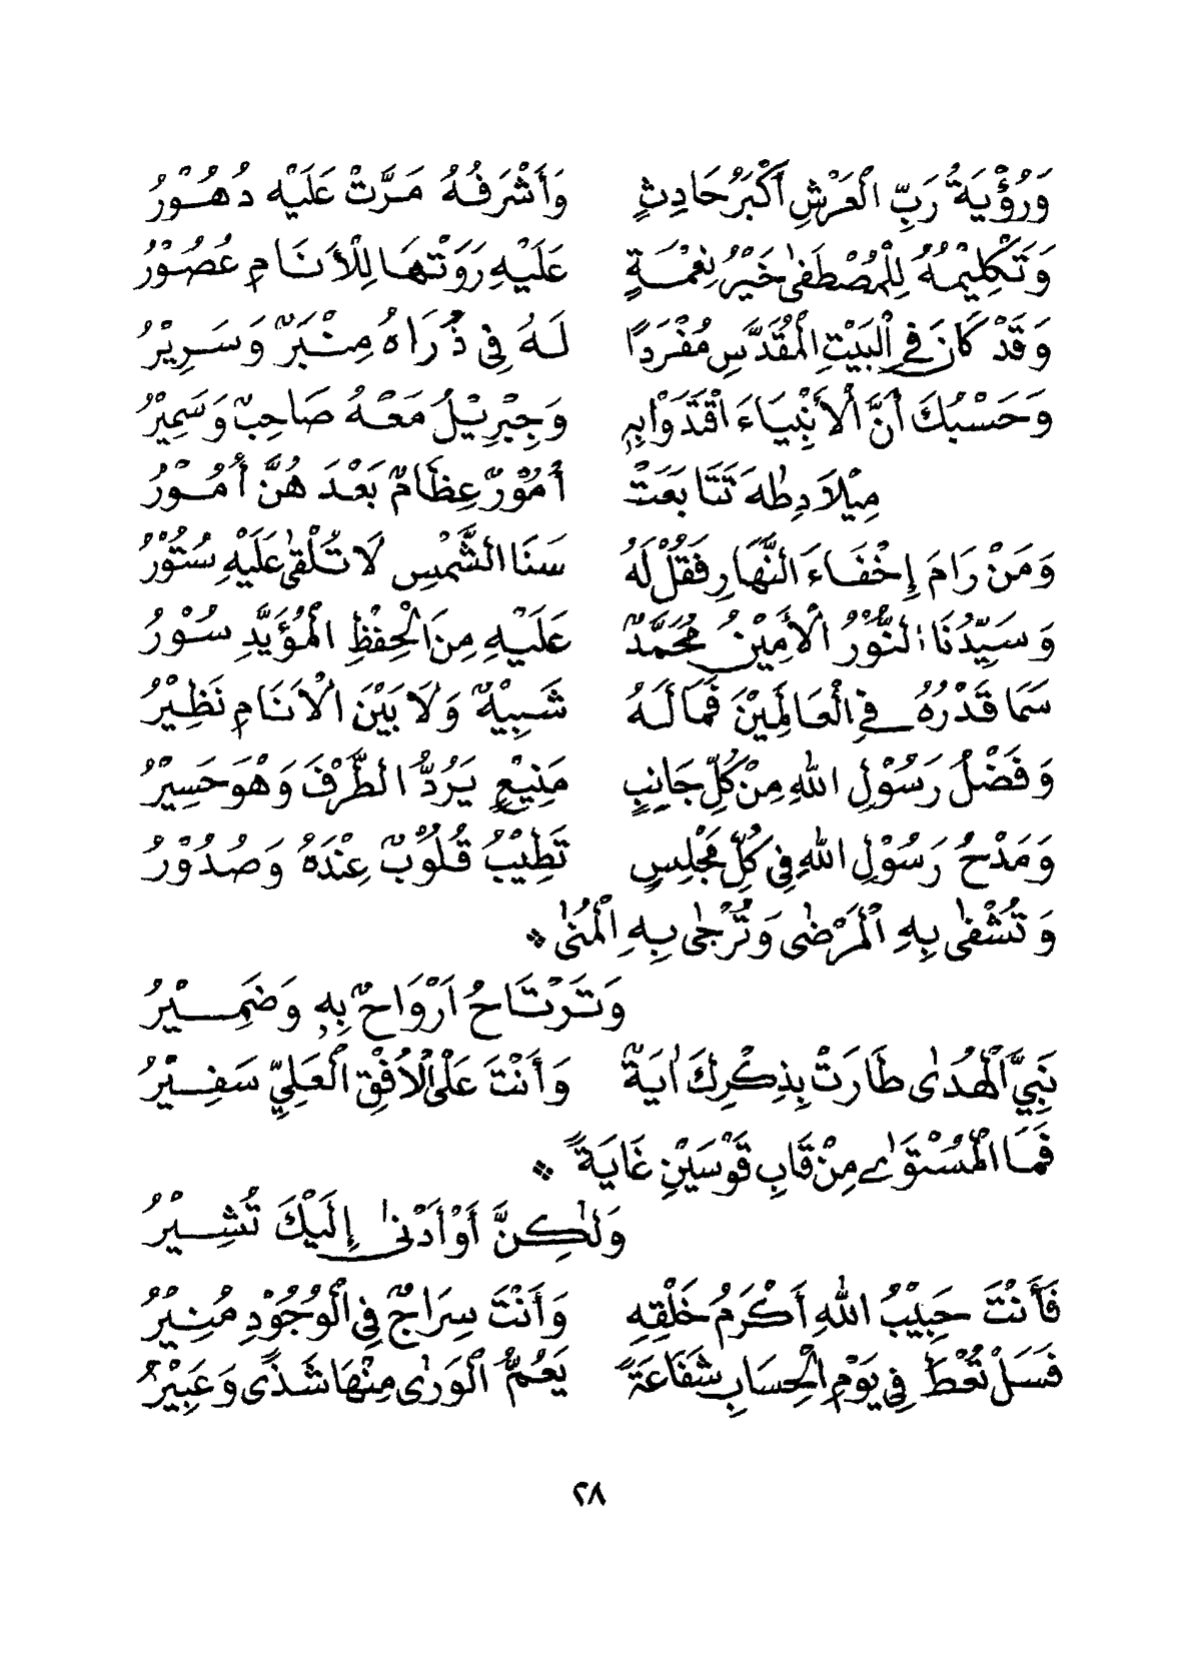 وَرُؤْيَةُ رَبِّ الْعَرْشِ أَكْبَرُ حَادِثٍ وَأَشْرَفُهُ مَرَّتْ عَلَيْهِ دُهُوْرُ
وَتَكْلِيْمُهُ لِلْمُصْطَفٰى خَيْرُ نِعْمَةٍ عَلَيْهِ رَوَتْهَا لِلْأَنَامِ عُصُوْرُ
وَقَدْ كَانَ فِي الْبَيْتِ الْمُقَدَّسِ مُفْرَدًا لَهُ فِي ذُرَاهُ مِنْبَرٌ وَسَرِيْرُ
وَحَسْبُكَ أَنَّ الْأَنْبِيَاءَ اقْتَدَوْا بِهِ وَجِبْرِيْلُ مَعْهُ صَاحِبٌ وَسَمِيْرُ
مِيْلَادِ طٰهَ تَتَابَعَتْ أُمُوْرٌ عِظَامٌ بَعْدَ هُنَّ أُمُوْرُ
وَمَنْ رَامَ إِخْفَاءَ النَّهَارِ فَقُلْ لَهُ سَنَا الشَّمْسِ لَا تُلْقٰى عَلَيْهِ سُتُوْرُ
وَسَيِّدُنَا النُّوْرُ الْأَمِيْنُ مُحَمَّدٌ عَلَيْهِ مِنَ الْحِفْظِ الْمُؤَيَّدِ سُوْرُ
سَمَا قَدْرُهُ فِي الْعَالَمِيْنَ فَمَا لَهُ شَبِيْهٌ وَلَا بَيْنَ الْأَنَامِ نَظِيْرُ
وَفَضْلُ رَسُوْلِ اللهِ مِنْ كُلِّ جَانِبٍ مَنِيْعٍ يَرُدُّ الطَّرْفَ وَهْوَ حَسِيْرُ
وَمَدْحُ رَسُوْلِ اللهِ فِي كُلِّ مَجْلِسٍ تَطِيْبُ قُلُوْبٌ عِنْدَهُ وَصُدُوْرُ
وَتُشْفٰى بِهِ الْمَرْضٰى وَتُرْجٰى بِهِ الْمُنٰى *
وَتَرْتَاحُ اَرْوَاحٌ بِهِ وَضَمِيْرُ
نَبِيَّ الْهُدٰى طَارَتْ بِذِكْرِكَ اٰيَةٌ وَأَنْتَ عَلَى الْأُفْقِ الْعَلِيِّ سَفِيْرُ
فَمَا الْمُسْتَوٰى مِنْ قَابِ قَوْسَيْنِ غَايَةً *
وَلٰكِنَّ أَوْ أَدْنٰى إِلَيْكَ تُشِيْرُ
فَأَنْتَ حَبِيْبُ اللهِ أَكْرَمُ خَلْقِهِ وَأَنْتَ سِرَاجٌ فِي الْوُجُوْدِ مُنِيْرُ
فَسَلْ تُعْطَ فِي يَوْمِ الْحِسَابِ شَفَاعَةً يَعُمُّ الْوَرٰى مِنْهَا شَذًى وَعَبِيْرُ
٢٨